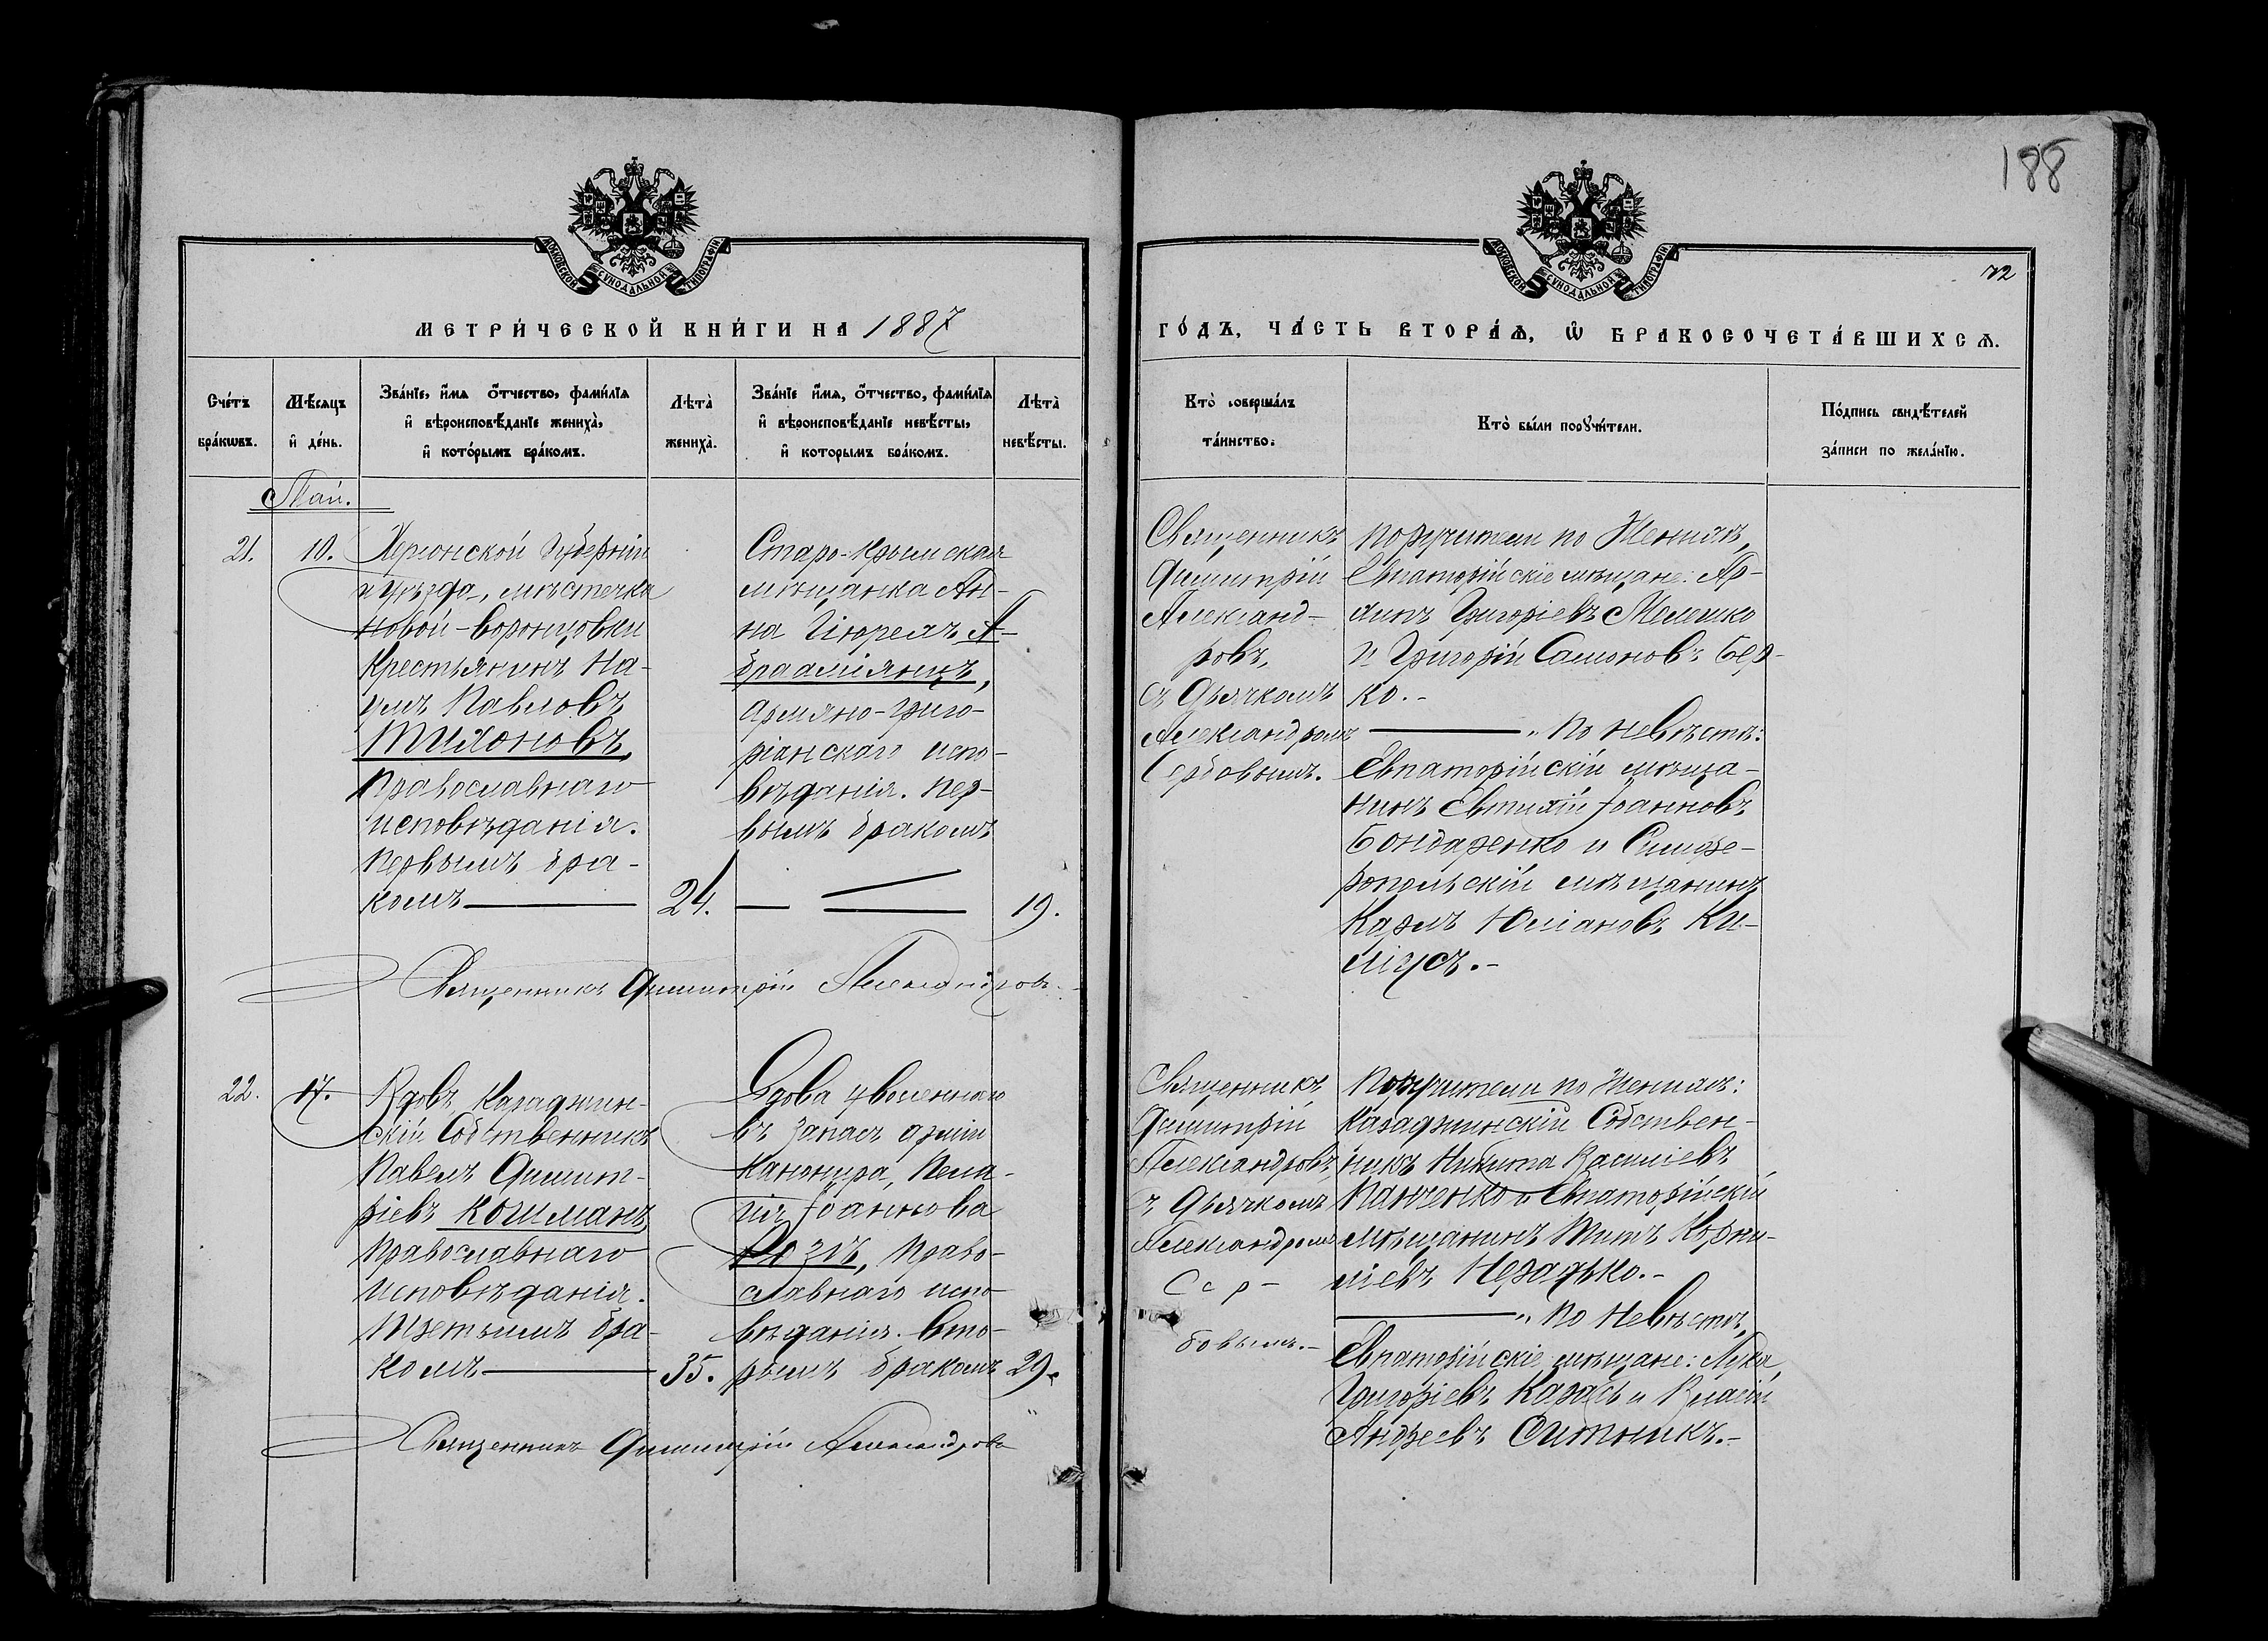 188
МОСКОВСКОЙ СѴНОДАЛЬНОЙ ТИПОГРАФІИ.
МОСКОВСКОЙ СѴНОДАЛЬНОЙ ТИПОГРАФІИ.
72
МЕТРИ́ЧЕСКОЙ КНИ́ГИ НА 1887
ГО́ДЪ, ЧА́СТЬ ВТОРА́Ѧ, Ѽ БРАКОСОЧЕТА́ВШИХСѦ.
Сче́тъ
бра́кѡвъ.
Мѣ́сѧцъ
и҆ де́нь.
Зва́нїе, и҆́мѧ ѻ҆́тчество, фами́лїѧ
и҆ вѣроисповѣ́данїе жениха̀,
и҆ кото́рымъ бра́комъ.
Лѣта̀
жениха̀.
Зва́нїе и҆́мѧ, ѻ҆́тчество, фами́лїѧ
и҆ вѣроисповѣ́данїе невѣ́сты,
и҆ которымъ бра́комъ.
Лѣта̀
невѣ́сты.
Кто̀ соверша́лъ
та́инство.
Кто̀ бы́ли порꙋчи́тели.
По́дпись свидѣ́телей
за́писи по жела́нїю.
Май.
21.
10.
Херсонской Губерніи
и уѣзда, мѣстечка
Новой-Воронцовки
Крестьянинъ На-
умъ Павловъ
Тихоновъ,
Православнаго
исповѣданія.
Первымъ бра-
комъ
24.
Старо-Крымская
мѣщанка Ан-
на Гіюрелъ А-
брааміянцъ,
Армяно-Григо-
ріанскаго испо-
вѣданія. Пер-
вымъ бракомъ
19.
Священникъ
Димитрій
Александ-
ровъ,
съ Дьячкомъ
Александромъ
Сербовымъ.
Поручители по Женихѣ,
Евпаторійскіе мѣщане: Ар-
Григоріевъ Мелешко
и Григорій Самоновъ Бер-
ко.-
" По Невѣстѣ:
Евпаторійскій мѣща-
нинъ Евтихій Іоанновъ
Бондаренко и Симфе-
ропольскій мѣщанинъ
Карлъ Юліановъ Ки-
ліусъ.-
Священникъ Димитрій Александровъ.
22.
17.
Вдовъ, Караджин-
скій Собственникъ
Павелъ Димит-
ріевъ Кошманъ
Православнаго
исповѣданія.
Третьимъ бра-
комъ
35.
Вдова уволеннаго
въ запасъ арміи
Канонира, Пела-
гія Іоаннова
Розъ, Право-
славнаго испо-
вѣданія. Вто-
рымъ бракомъ
29.
Священникъ
Димитрій
Александровъ,
съ Дьячкомъ
Александромъ
Сер-
бовымъ.-
Поручители по Женихѣ:
Караджинскій Собствен-
никъ Никита Василіевъ
Панченко и Евпаторійскій
мѣщанинъ Титъ Корни-
ліевъ Нерадько.-
" По Невѣстѣ,
Евпаторійскіе мѣщане: Лука
Григоріевъ Карась и Власій
Андреевъ Ситникъ.-
Священникъ Димитрій Александровъ